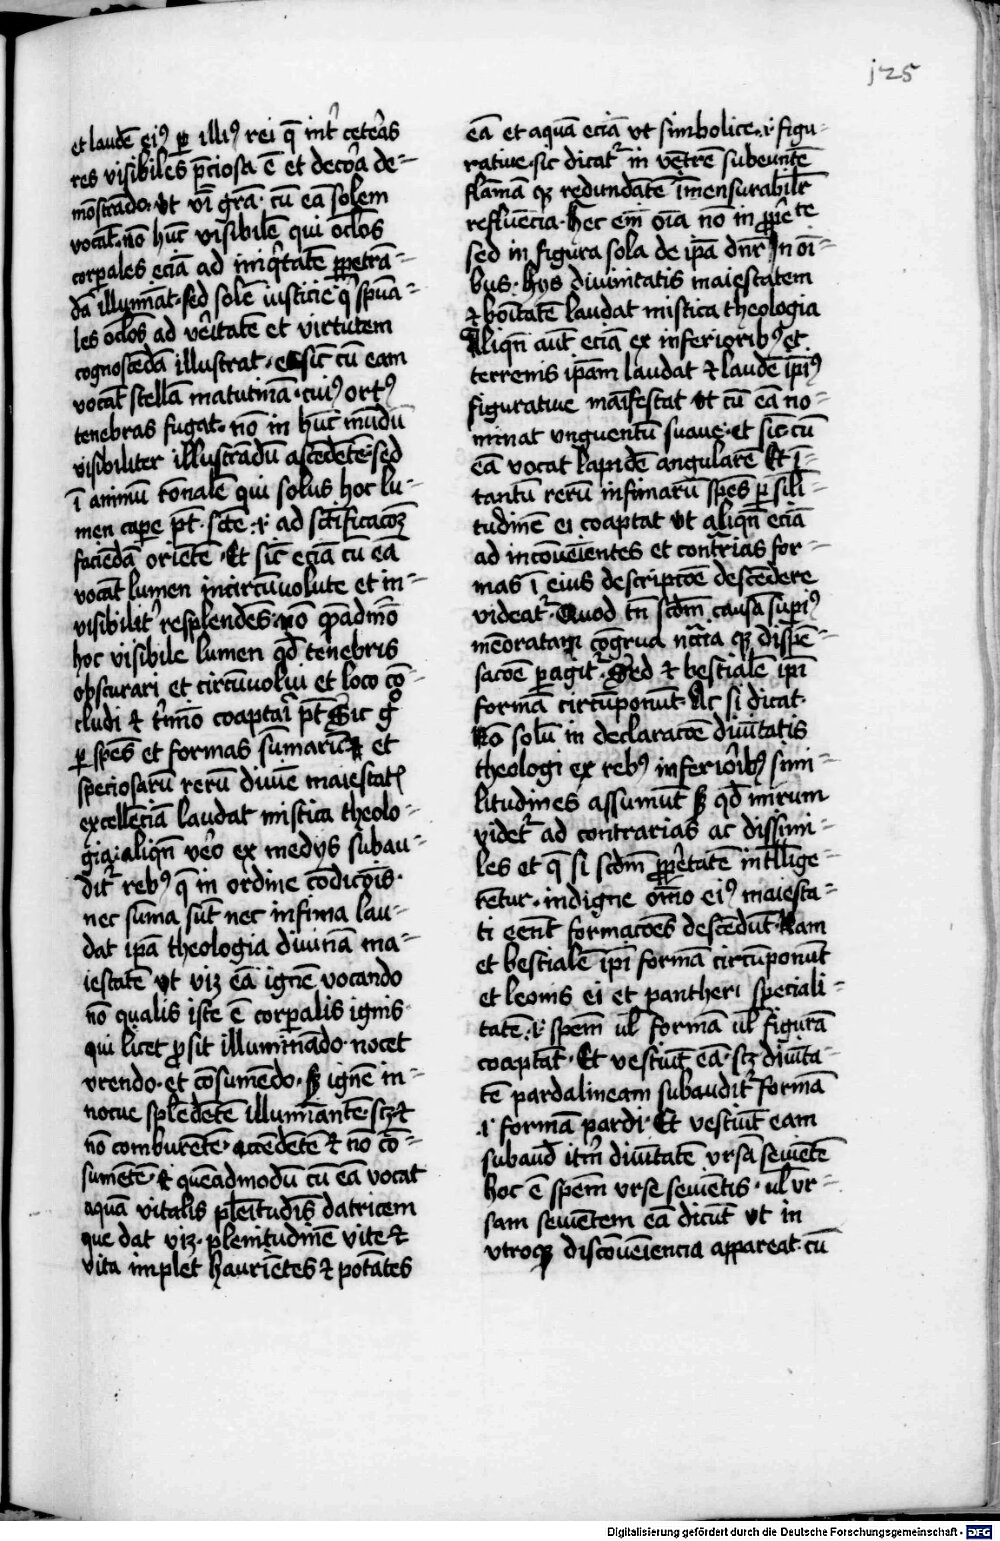 j25
et laudē eiꝰ ꝑ illiꝰ rei q̄ int̉ cete᷑as
res visibiles p̄ciosa ē et deco᷑a de-
mōstrādo. vt vī grā. cū eā solem
vocāt. nō hūc visibilē qui oclos
corꝑales eciā ad imꝙͥtatē ꝑpetrā-
dā illumīat. sed solē iusticie qͥ spūa-
les oclos ad vêitatē et virtutem
cognoscēdā illustrat. et sic̄ cū eam
vocāt stellā matutinā. cuiꝰ ortꝰ
tenebras fugat. nō in hūc mūdū
visibiliter illustrādū ascēdētē. sed
ī animū rōnalē qui solus hoc lu-
men caꝑe pt̄. scte .i. ad sctīficacōꝫ
faciēdā oriētē. Et sic̄ eciā cū eā
vocāt lumen incircūuolute et in-
visibilit̉ resplendēs. nō qēadmō
hoc visibile lumen qd̄ tenebris
obscurari et circūuolui et loco cō-
cludi ⁊ t̉mīo coaptaī pt̄. Sic gͦ
ꝑ spēs et formas sūmarū ⁊ et
speciosarū rerū diuīe maiestatꝭ
excellēciā laudat mistica theolo-
gia. aliqn̄ vêo ex medijs subau-
dit᷑ rebꝰ q̄ in ordine cōdicōis.
nec sūma sūt nec infima lau-
dat ipā theologia diuinā ma-
iestatē vt viꝫ eā ignē vocando
nō qualis iste ē corꝑalis ignis.
qui licet ꝓsit illuminādo. nocet
vrendo. et cōsumēdo. sꝫ ignē in-
nocue splēdētē illumīantē. scꝫ ⁊
nō comburētē. accēdētē ⁊ nō cō-
sumētē. ⁊ quēadmodū cū eā vocat
aquā vitalis pleītudīs datricem
que dat viꝫ. plenitudinē vite ⁊
vita implet haurīētes ⁊ potātes
eā et aquā eciā vt simbolice .i. figu-
ratiue. sic dicat᷑ in vētrē subeuntē
flāmā qꝫ redundātē īmensurabilr̄
refluēcia. Hec em̄ oīa nō in ꝓpêtate
sed in figura sola de ipā dn̄r. In oī-
bus. hijs diuinitatis maiestatem
⁊ bōitatē laudat mistica theologia
Aliqn̄ aūt eciā ex inferioribꝰ et
terrenis ipām laudat ⁊ laudē ipīꝰ
figuratiue maīfestat vt cū eā no-
minat vnguentū suaue. et sic̄ cū
eā vocat lapidē angularē Et ī-
tantū rerū infimarū spēs ꝑ sili-
tudinē ei coaptat vt aliqn̄ eciā
ad incōueīentes et contrarias for-
mas ī eius descripcōe descēdere
videat᷑. Quod tn̄ scdm̄ causā supīꝰ
mēoratam cōgrua nīcia qꝫ dispē-
sacōe ꝑagit. Sed ⁊ bestialē ipī
formā circūponūt. Ac si dicat.
Nō solū in declaracōe diuītatis
theologi ex rebꝰ inferiôibꝰ simi-
litudines assumūt sꝫ qd̄ mirum
videt᷑ ad contrarias ac dissimi-
les et q̄ si scdm̄ ꝓpêtatē intllige-
rētur. indigne oīmo eiꝰ maiesta-
ti eēnt formacōes descēdūt. Nam
et bestialē ipī formā circūponūt
et leonis ei et pantheri speciali-
tatē .i. spēm ul̄ formā ul̄ figurā
coaptāt. Et vestiūt eā. scꝫ diuīta-
tē pardalineam subaudit᷑ formā
.i. formā pardi. Et vestiūt eam
subaud̄ itm̄ diuītatē vrsā seuiētē
hoc ē spēm vrse seuiētis. ul̄ vr-
sam seuiētem eā dicūt vt in
vtroqꝫ discōueīencia appareat. cū
Digitalisierung gefördert durch die Deutsche Forschungsgemeinschaft - DFG